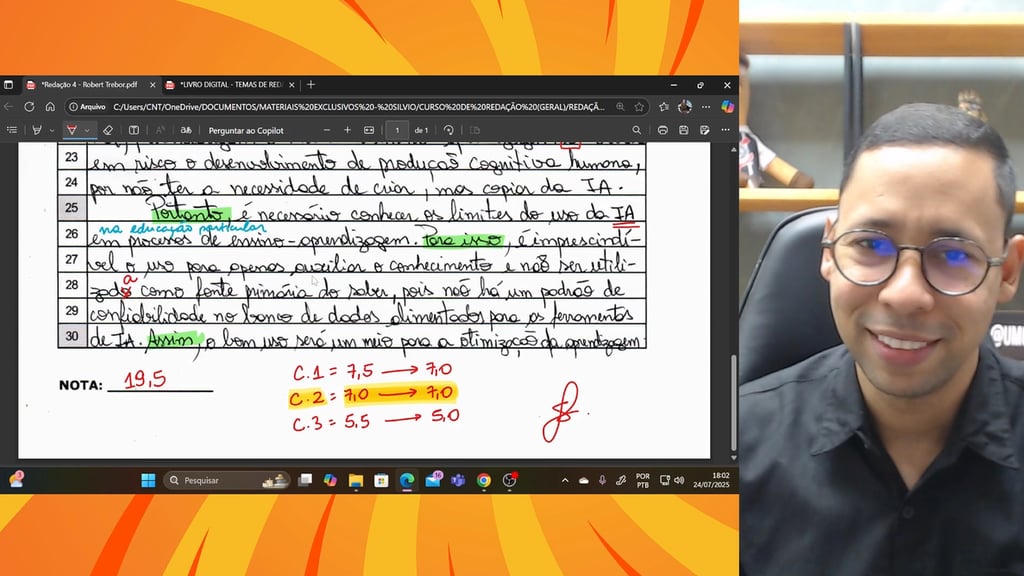 *Redação 4 - Robert Trebor.pdf
*LIVRO DIGITAL - TEMAS DE RED
Arquivo C:/Users/CNT/OneDrive/DOCUMENTOS/MATERIAIS%20EXCLUSIVOS%20-%20SILVIO/CURSO%20DE%20REDAÇÃO%20(GERAL)/REDAÇÃ...
Perguntar ao Copilot
1 de 1
23 em risco o desenvolvimento de produção cognitiva humana,
24 por não ter a necessidade de criar, mas copiar da IA.
25 Portanto, é necessário conhecer os limites do uso da IA
na educação particular
26 em processos de ensino-aprendizagem. Para isso, é imprescindí-
27 vel o uso para apenas auxiliar o conhecimento e não ser utili-
a
28 zado como fonte primária do saber, pois não há um padrão de
29 confiabilidade no banco de dados alimentados para as ferramentas
30 de IA. Assim, o bom uso será um meio para a otimização da aprendizagem
NOTA: 19,5
C.1 = 7,5 → 7,0
C.2 = 7,0 → 7,0
C.3 = 5,5 → 5,0
3
Pesquisar
16
POR
PTB
18:02
24/07/2025